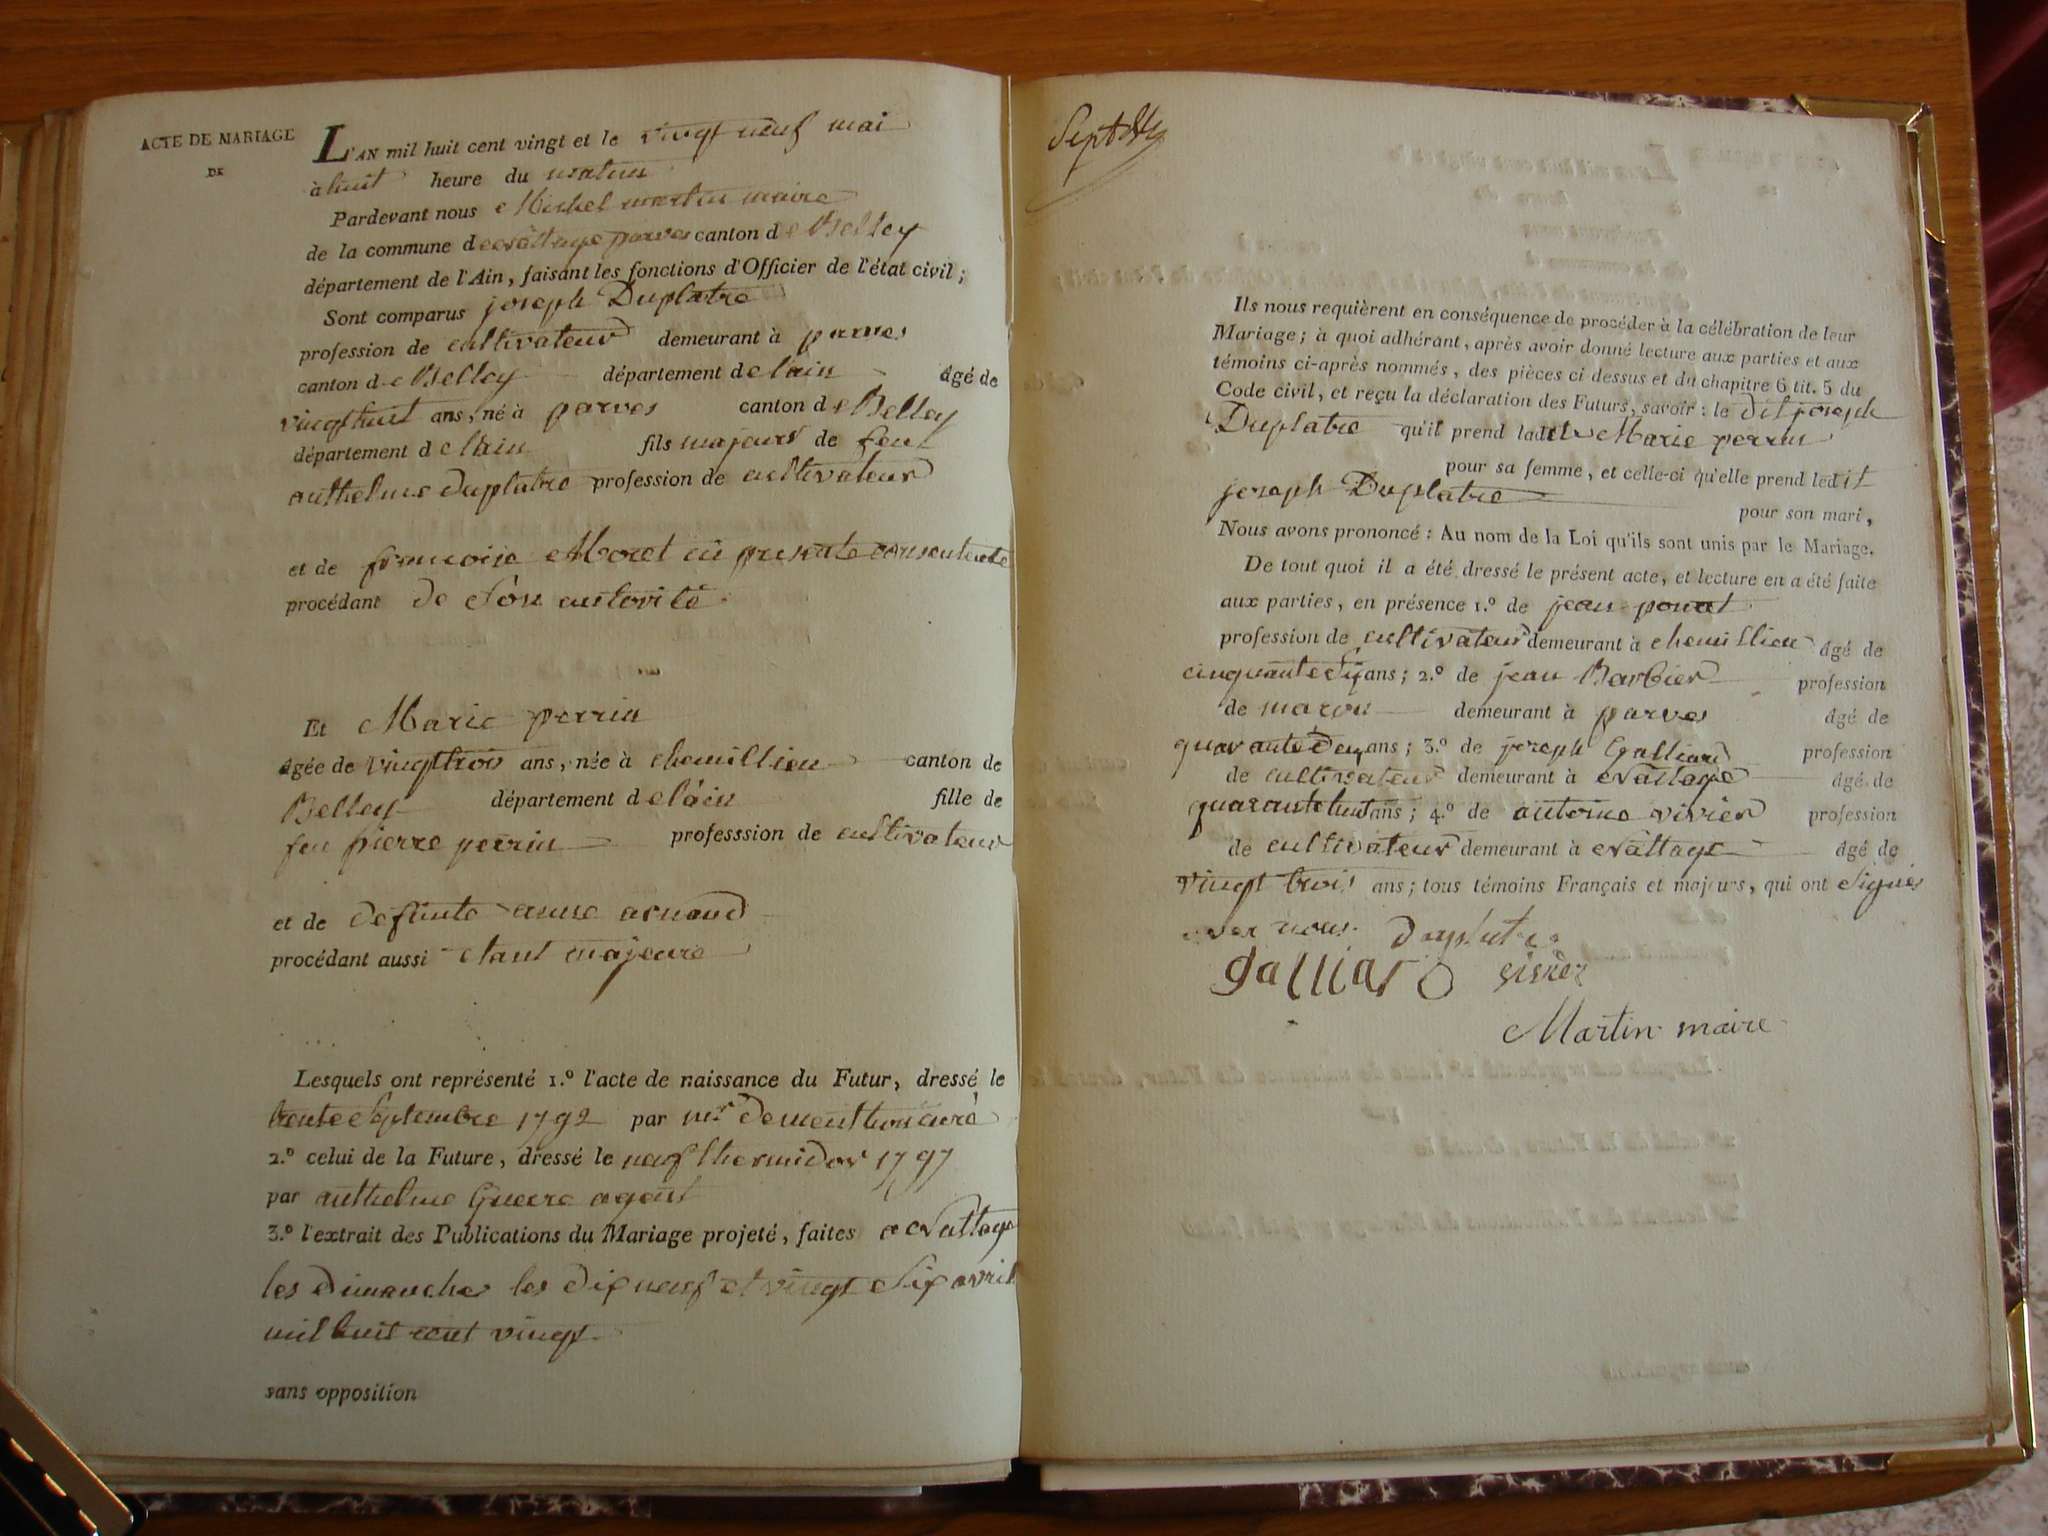 ACTE DE MARIAGE
DE
L'AN mil huit cent vingt et le vingt neuf mai
à huit heure du matin
Pardevant nous Michel martin maire
de la commune de nattage parves canton de Belley
département de l'Ain, faisant les fonctions d'Officier de l'état civil ;
Sont comparus joseph Duplatre
profession de cultivateur demeurant à parves
canton de Belley département de lain âgé de
vingt huit ans, né à parves canton de Belley
département de lain fils majeur de feu
anthelme duplatre profession de cultivateur
et de francoise Moret ci presente consentente
procédant de son autorité
Et Marie perrin
âgée de vingt trois ans, née à chemillieu canton de
Belley département de láin fille de
feu pierre perrin professsion de cultivateur
et de defunte anne arnaud
procédant aussi etant majeure
Lesquels ont représenté 1.º l'acte de naissance du Futur, dressé le
trente Septembre 1792 par mr dementhon curé
2.º celui de la Future, dressé le neuf thermidor 1797
par anthelme Guerre agent
3.º l'extrait des Publications du Mariage projeté, faites a nattage
les dimanches les dix neuf et vingt Six avril
mil huit cent vingt
sans opposition
Sept
Ils nous requièrent en conséquence de procéder à la célébration de leur
Mariage ; à quoi adhérant, après avoir donné lecture aux parties et aux
témoins ci-après nommés, des pièces ci dessus et du chapitre 6 tit. 5 du
Code civil, et reçu la déclaration des Futurs, savoir : le dit joseph
Duplatre qu'il prend ladite Marie perrin
pour sa femme, et celle-ci qu'elle prend ledit
joseph Duplatre
pour son mari,
Nous avons prononcé : Au nom de la Loi qu'ils sont unis par le Mariage.
De tout quoi il a été dressé le présent acte, et lecture en a été faite
aux parties, en présence 1.º de jean ponat
profession de cultivateur demeurant à chemillieu âgé de
cinquante Six ans ; 2.º de jean Barbier profession
de macon demeurant à parves âgé de
quarante deux ans ; 3.º de joseph Galliard profession
de cultivateur demeurant à nattage âgé de
quarante huit ans ; 4.º de antoine vivier profession
de cultivateur demeurant à nattage âgé de
vingt trois ans ; tous témoins Français et majeurs, qui ont Signés
avec nous. duplatre
galliard
Martin maire